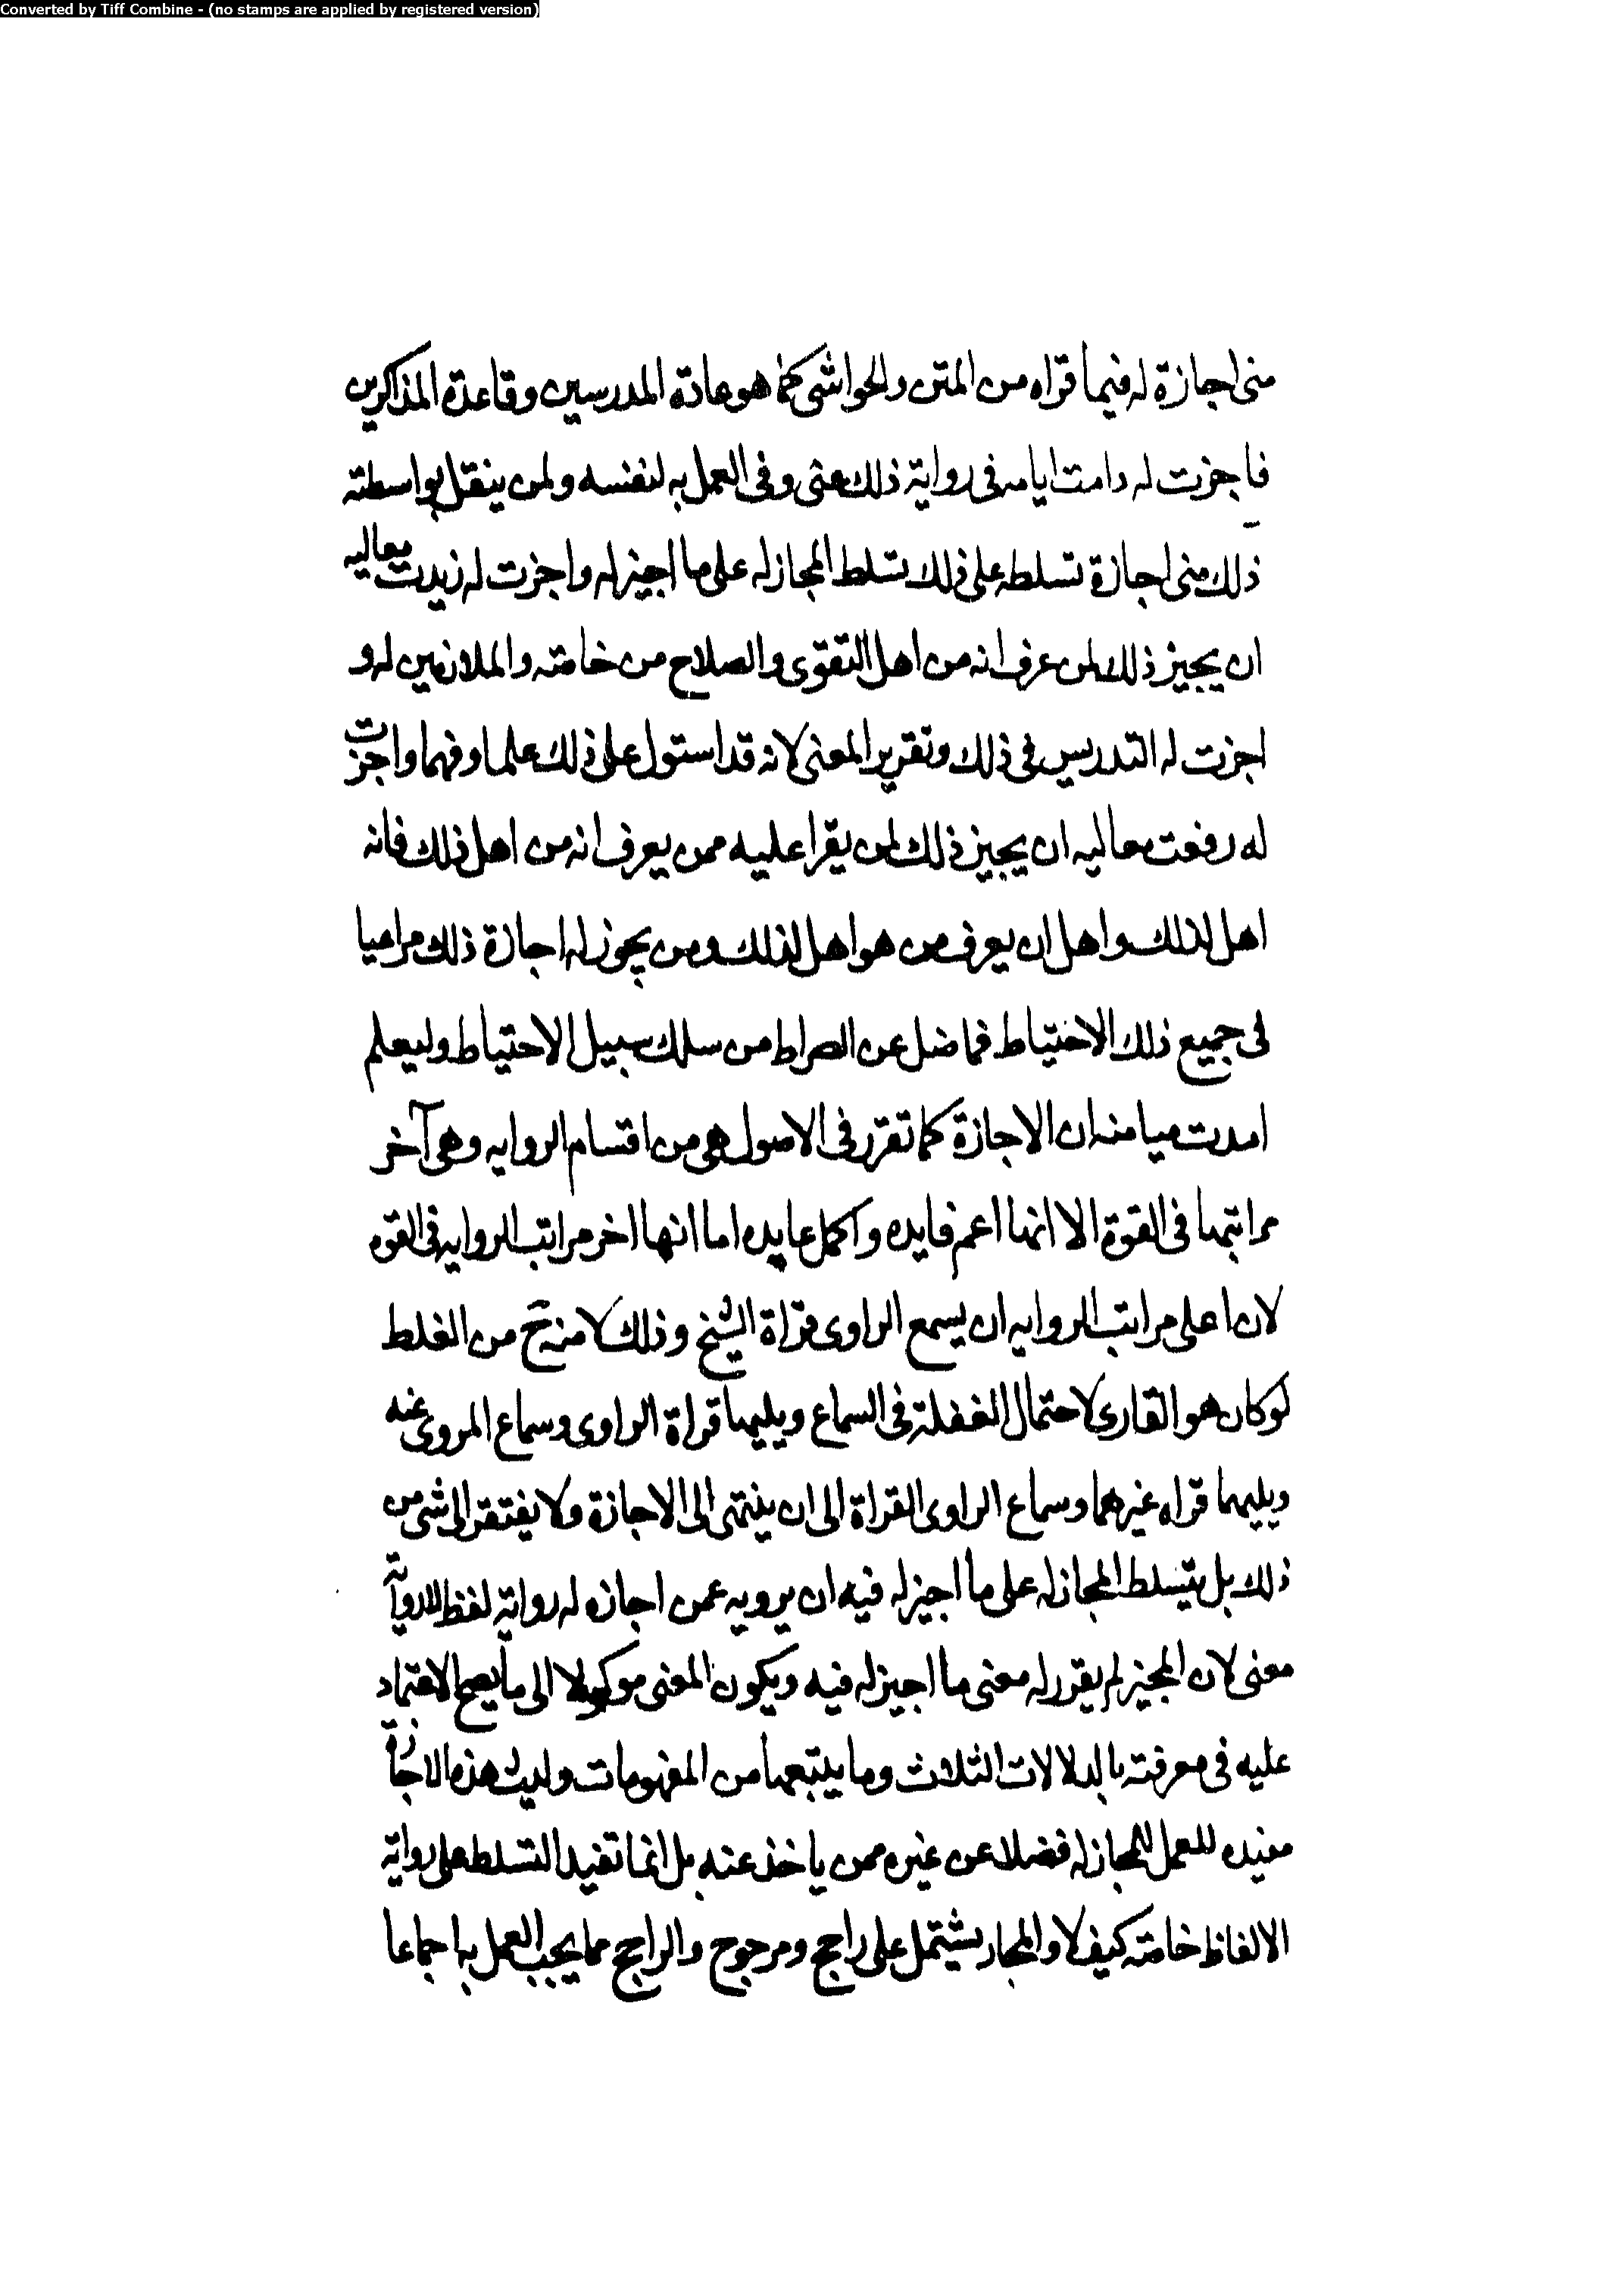 Converted by Tiff Combine - (no stamps are applied by registered version)
منى اجازة له فيما قراه من المتن والحواشى كما هو عادة المدرسين وقاعدة المذاكرين
فاجزت له دامت ايامه فى رواية ذلك عنى وفى العمل به لنفسه ولمن ينقل بواسطته
ذلك منى اجازة تسلطه على ذلك تسلط المجاز له على ما اجيز له واجزت له زيدت معاليه
ان يجيز ذلك لمن عرف انه من اهل التقوى والصلاح من خاصته والملازمين له و
اجزت له التدريس فى ذلك وتقرير المعنى لانه قد استول على ذلك علما وفهما واجزت
له رفعت معاليه ان يجيز ذلك لمن يقرا عليه ممن يعرف انه من اهل ذلك فانه
اهل لذلك واهل ان يعرف من هو اهل لذلك ومن يجوز له اجازة ذلك مراعيا
فى جميع ذلك الاحتياط فما ضل عن الصراط من سلك سبيل الاحتياط وليعلم
امدت ميامنه ان الاجازة كما تقرر فى الاصول هى من اقسام الروايه وهى آخر
مراتبها فى القوة الا انها اعم فايده واكمل عايده اما انها اخر مراتب الروايه فى القوه
لان اعلى مراتب الروايه ان يسمع الراوى قراة الشيخ وذلك لا منه ح من الغلط
لو كان هو القارى لاحتمال الغفلة فى السماع ويليها قراة الراوى وسماع المروى عنه
ويليهما قراه غيرهما وسماع الراوى القراة الى ان ينتهى الى الاجازة ولا يفتقر الى شى من
ذلك بل يتسلط المجاز له على ما اجيز له فيه ان يرويه عمن اجازه له رواية لفظ لا رواية
معنى لان المجيز لم يقرر له معنى ما اجيز له فيه ويكون المعنى موكولا الى ما يصح الاعتماد
عليه فى معرفته بالدلالات الثلاث وما يتبعها من المفهومات وليت هذه الاجازة
مفيده للعمل للمجاز له فضلا عن غيره ممن ياخذ عنه بل انما تفيد التسلط على رواية
الالفاظ خاصته كيف لا والمجاز يشتمل على راجح ومرجوح والراجح مما يجب العمل به اجماعا